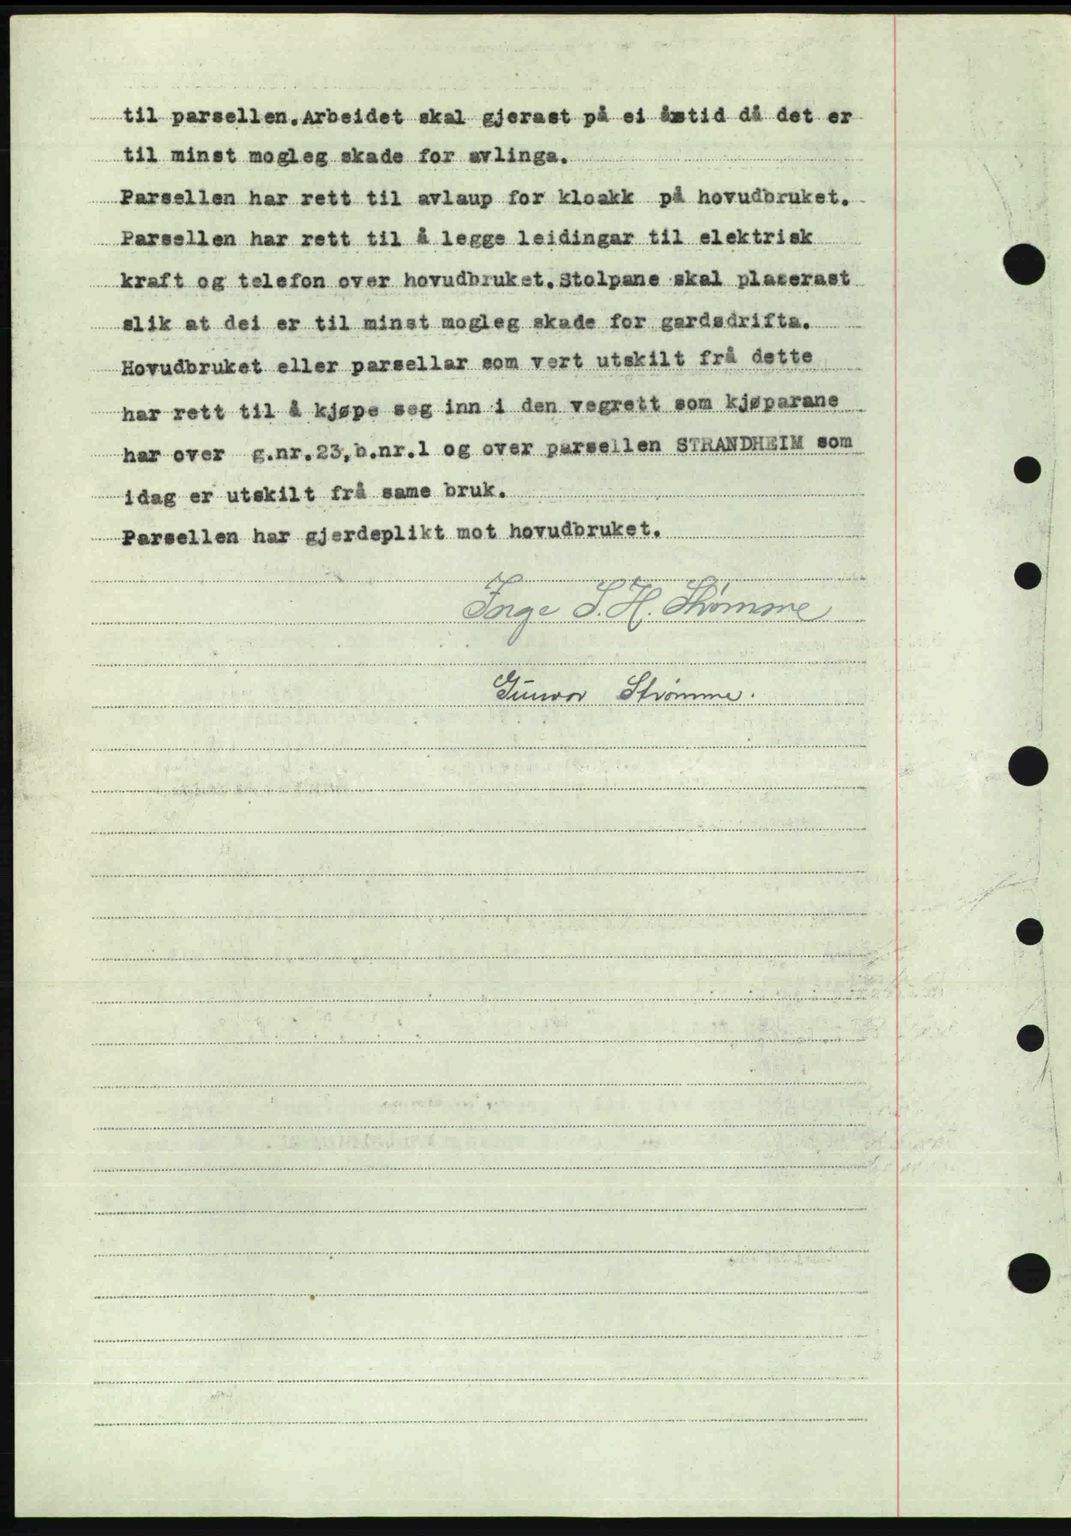 til parsellen.Arbeidet skal gjerast på ei årstid då det er
til minst mogleg skade for avlinga.
Parsellen har rett til avlaup for kloakk på hovudbruket.
Parsellen har rett til å legge leidingar til elektrisk
kraft og telefon over hovudbruket.Stolpane skal plaserast
slik at dei er til minst mogleg skade for gardsdrifta.
Hovudbruket eller parsellar som vert utskilt frå dette
har rett til å kjøpe seg inn i den vegrett som kjøparane
har over g.nr.23,b.nr.1 og over parsellen STRANDHEIM som
idag er utskilt frå same bruk.
Parsellen har gjerdeplikt mot hovudbruket.
Inge S. H. Strømme
Gunvor Strømme.